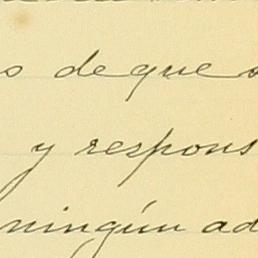 s de que s
y respons
ningún ad